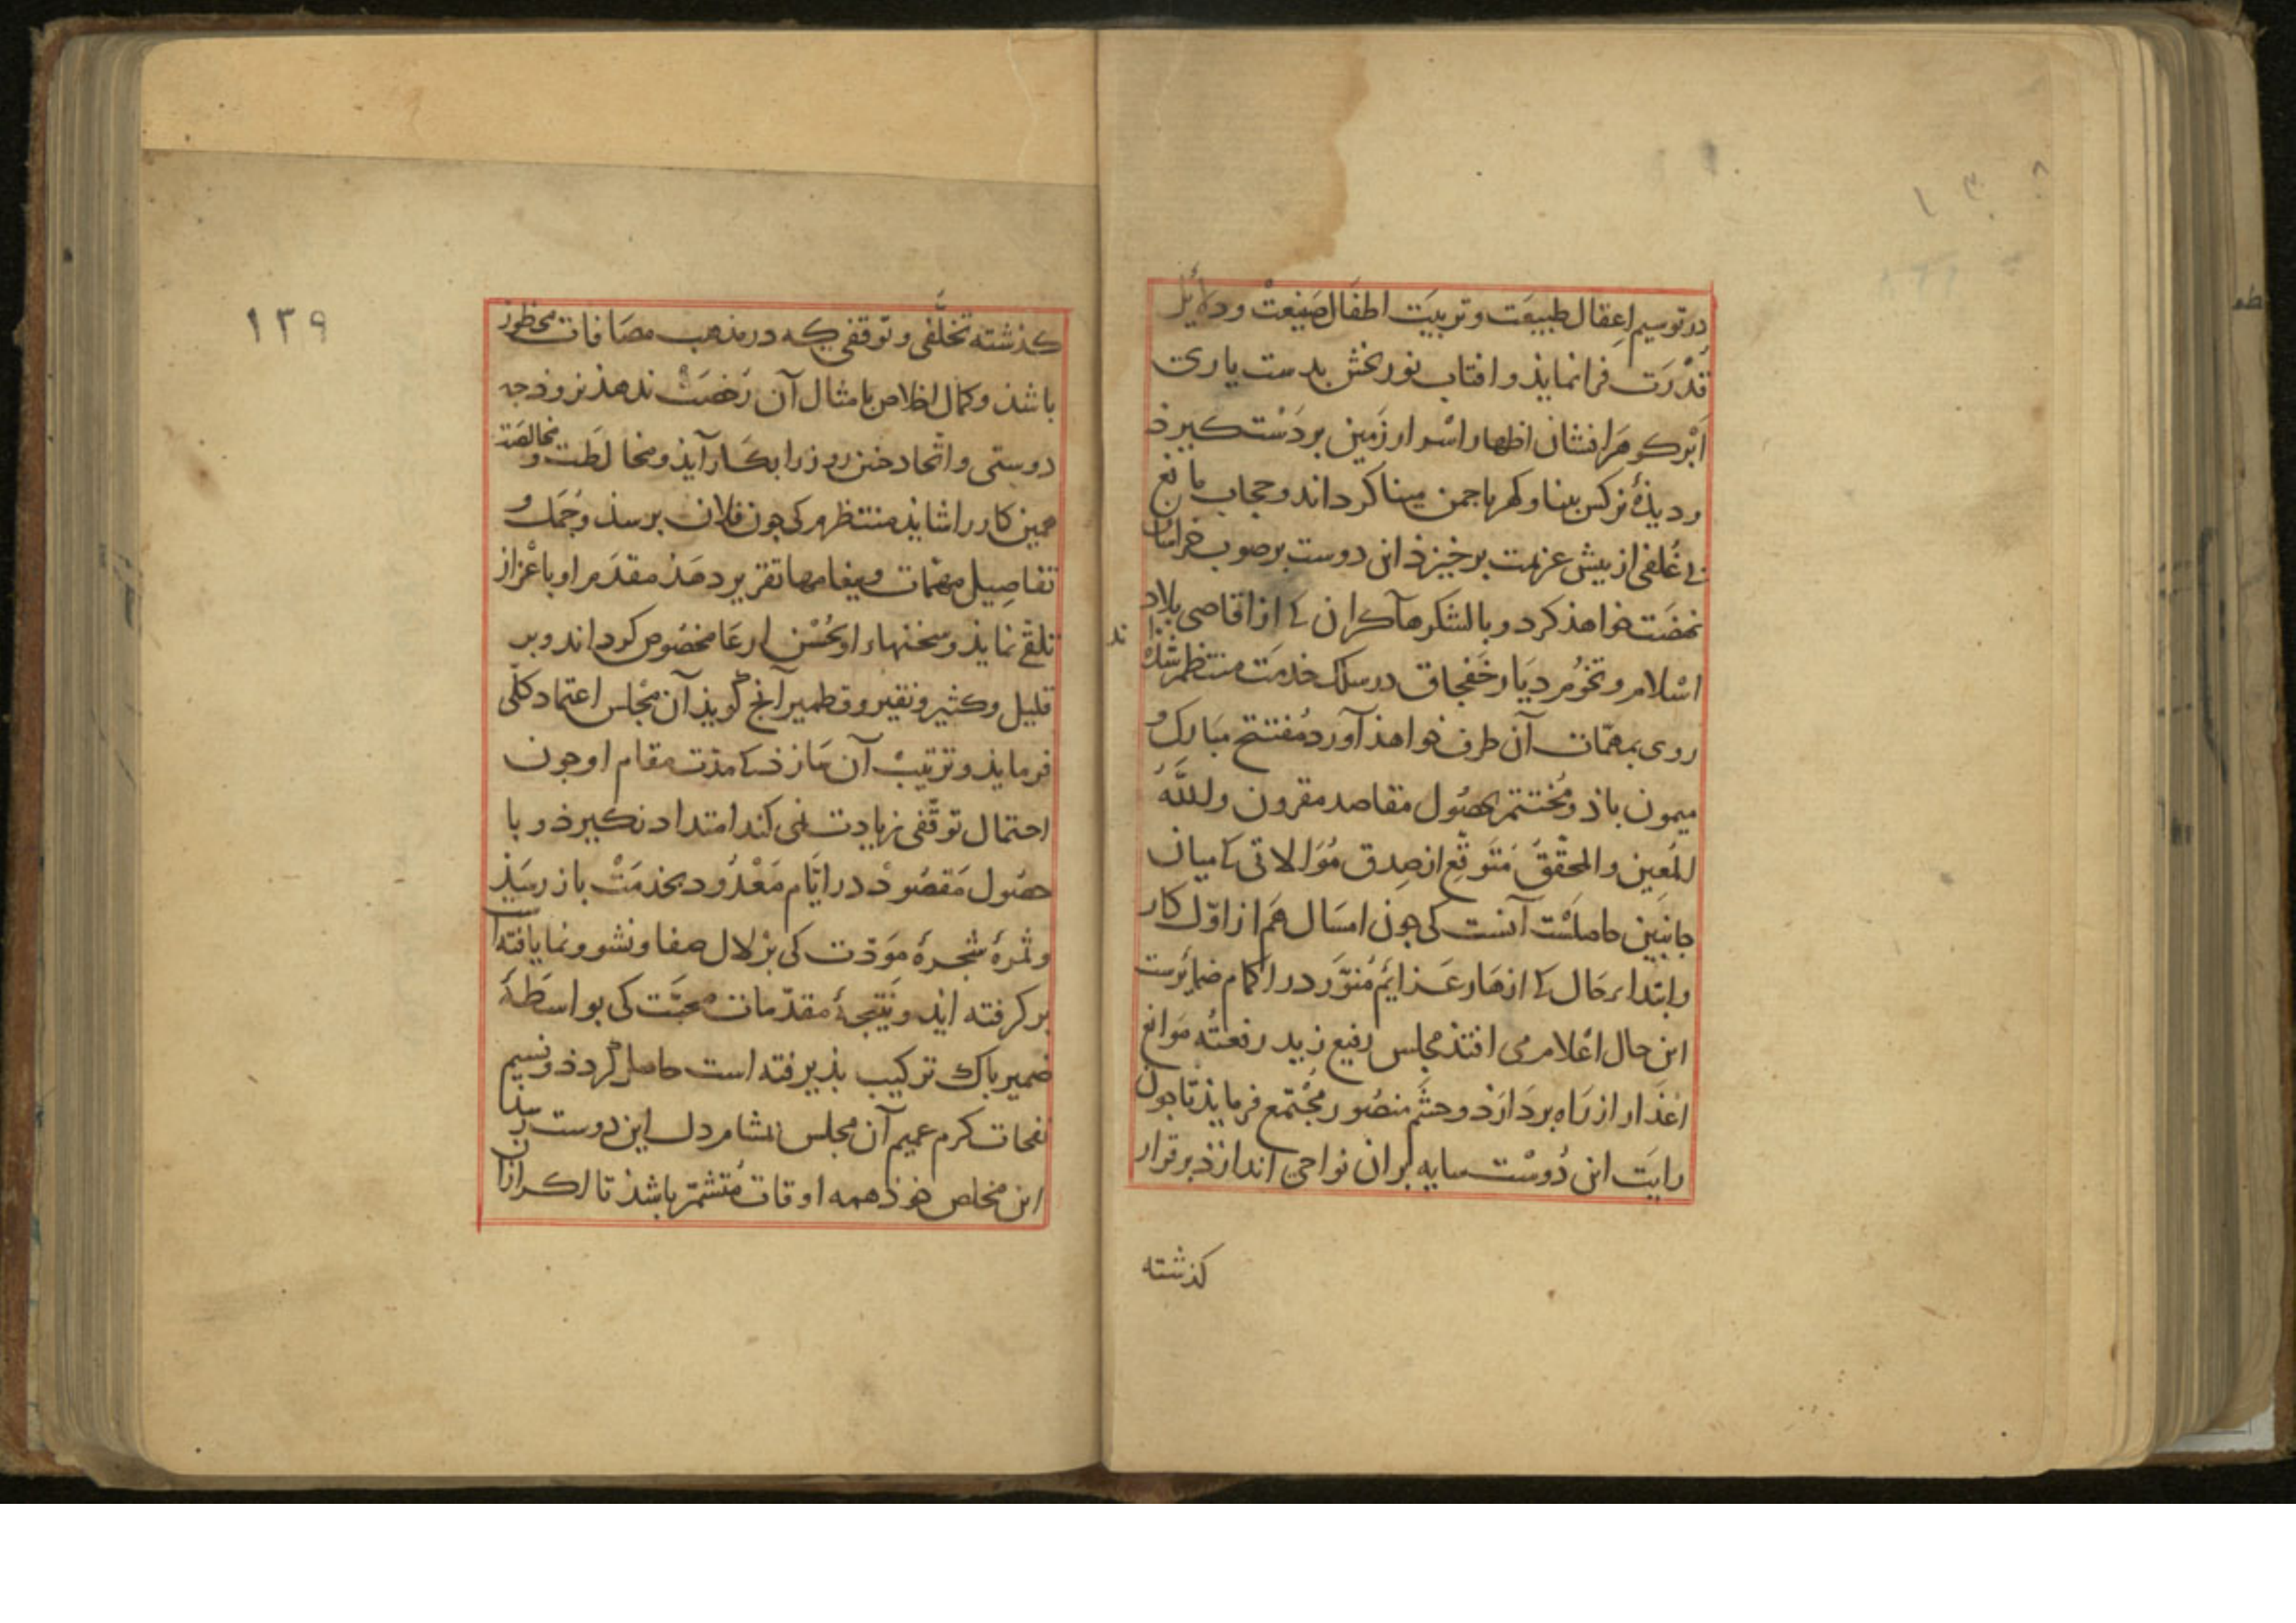 در توسیم اعقال طبیعت و تربیت اطفال صنیعت و دلائل
قدرت فرا نماید و افتاب نور بخش بدست یاری
ابر کوهر افشان اظهار اسرار زمین بر دست کیرذ
و دیذهٔ نرکس بینا و کهرباجمن مینا کرداند و حجاب مانع
غلفی از بیش عزیمت برخیزذ این دوست بر صوب خراسان
نهضت خواهذ کرد و با لشکرهآ کران کی از اقاصی بلاد
اسلام و تخوم دیار خفجاق در سلک خدمت منتظم شذه
اند
روی بمهمّات آن طرف خواهذ آورد مفتتح مبارک و
میمون باذ و مختتم بحصول مقاصد مقرون والله
المعین والمحقق متوقع از صدق موالاتی کی میان
جانبین حاصلست آنست کی جون امسال هم از اوّل کار
و ابتداء حال کی ازهار عزایم منوّر در اکمام ضمایرست
این حال اعلام می افتذ مجلس رفیع زید رفعته موانع
اعذار از راه بردارذ و حشم منصور مجتمع فرمایذ تا جون
رایت این دوست سایه بران نواحی اندازذ بر قرار
کذشته
۱۳۹
کذشته تخلّفی و توقفی که در مذهب مصافات محظور
باشذ و کمال اخلاص بامثال آن رخصت ندهذ نروذ جه
دوستی و اتّحاد جنین روز را بکار آیذ و مخالطت و مخالصت
همین کار را شایذ منتظرم کی جون فلان برسذ و جمل و
تفاصیل مهمّات و بیغامها تقریر دهذ مقدم او باعزاز
تلقّی نمایذ و سخنهاء او بحسن ارعا مخصوص کرداند و بر
قلیل و کثیر و نقیر و قطمیر آنج کویذ آن مجلس اعتماد کلّی
فرمایذ و ترتیب آن سازذ کی مدت مقام او جون
احتمال توقّفی زیادت نمی کند امتداد نکیرذ و با
حصول مقصود در ایّام معدود بخدمت باز رسیذ
و ثمرهٔ شجرهٔ موّدت کی بزلال صفا و نشو و نما یافته است
بر کرفته ایذ و نتیجهٔ مقدّمات محبّت کی بواسطهٔ
ضمیر باک ترکیب بذیرفته است حاصل کردذ و نسیم
نفحات کرم عمیم آن مجلس بمشام دل این دوست رسذ
این مخلص خوذ همه اوقات متشمّر باشذ تا اکر ازان